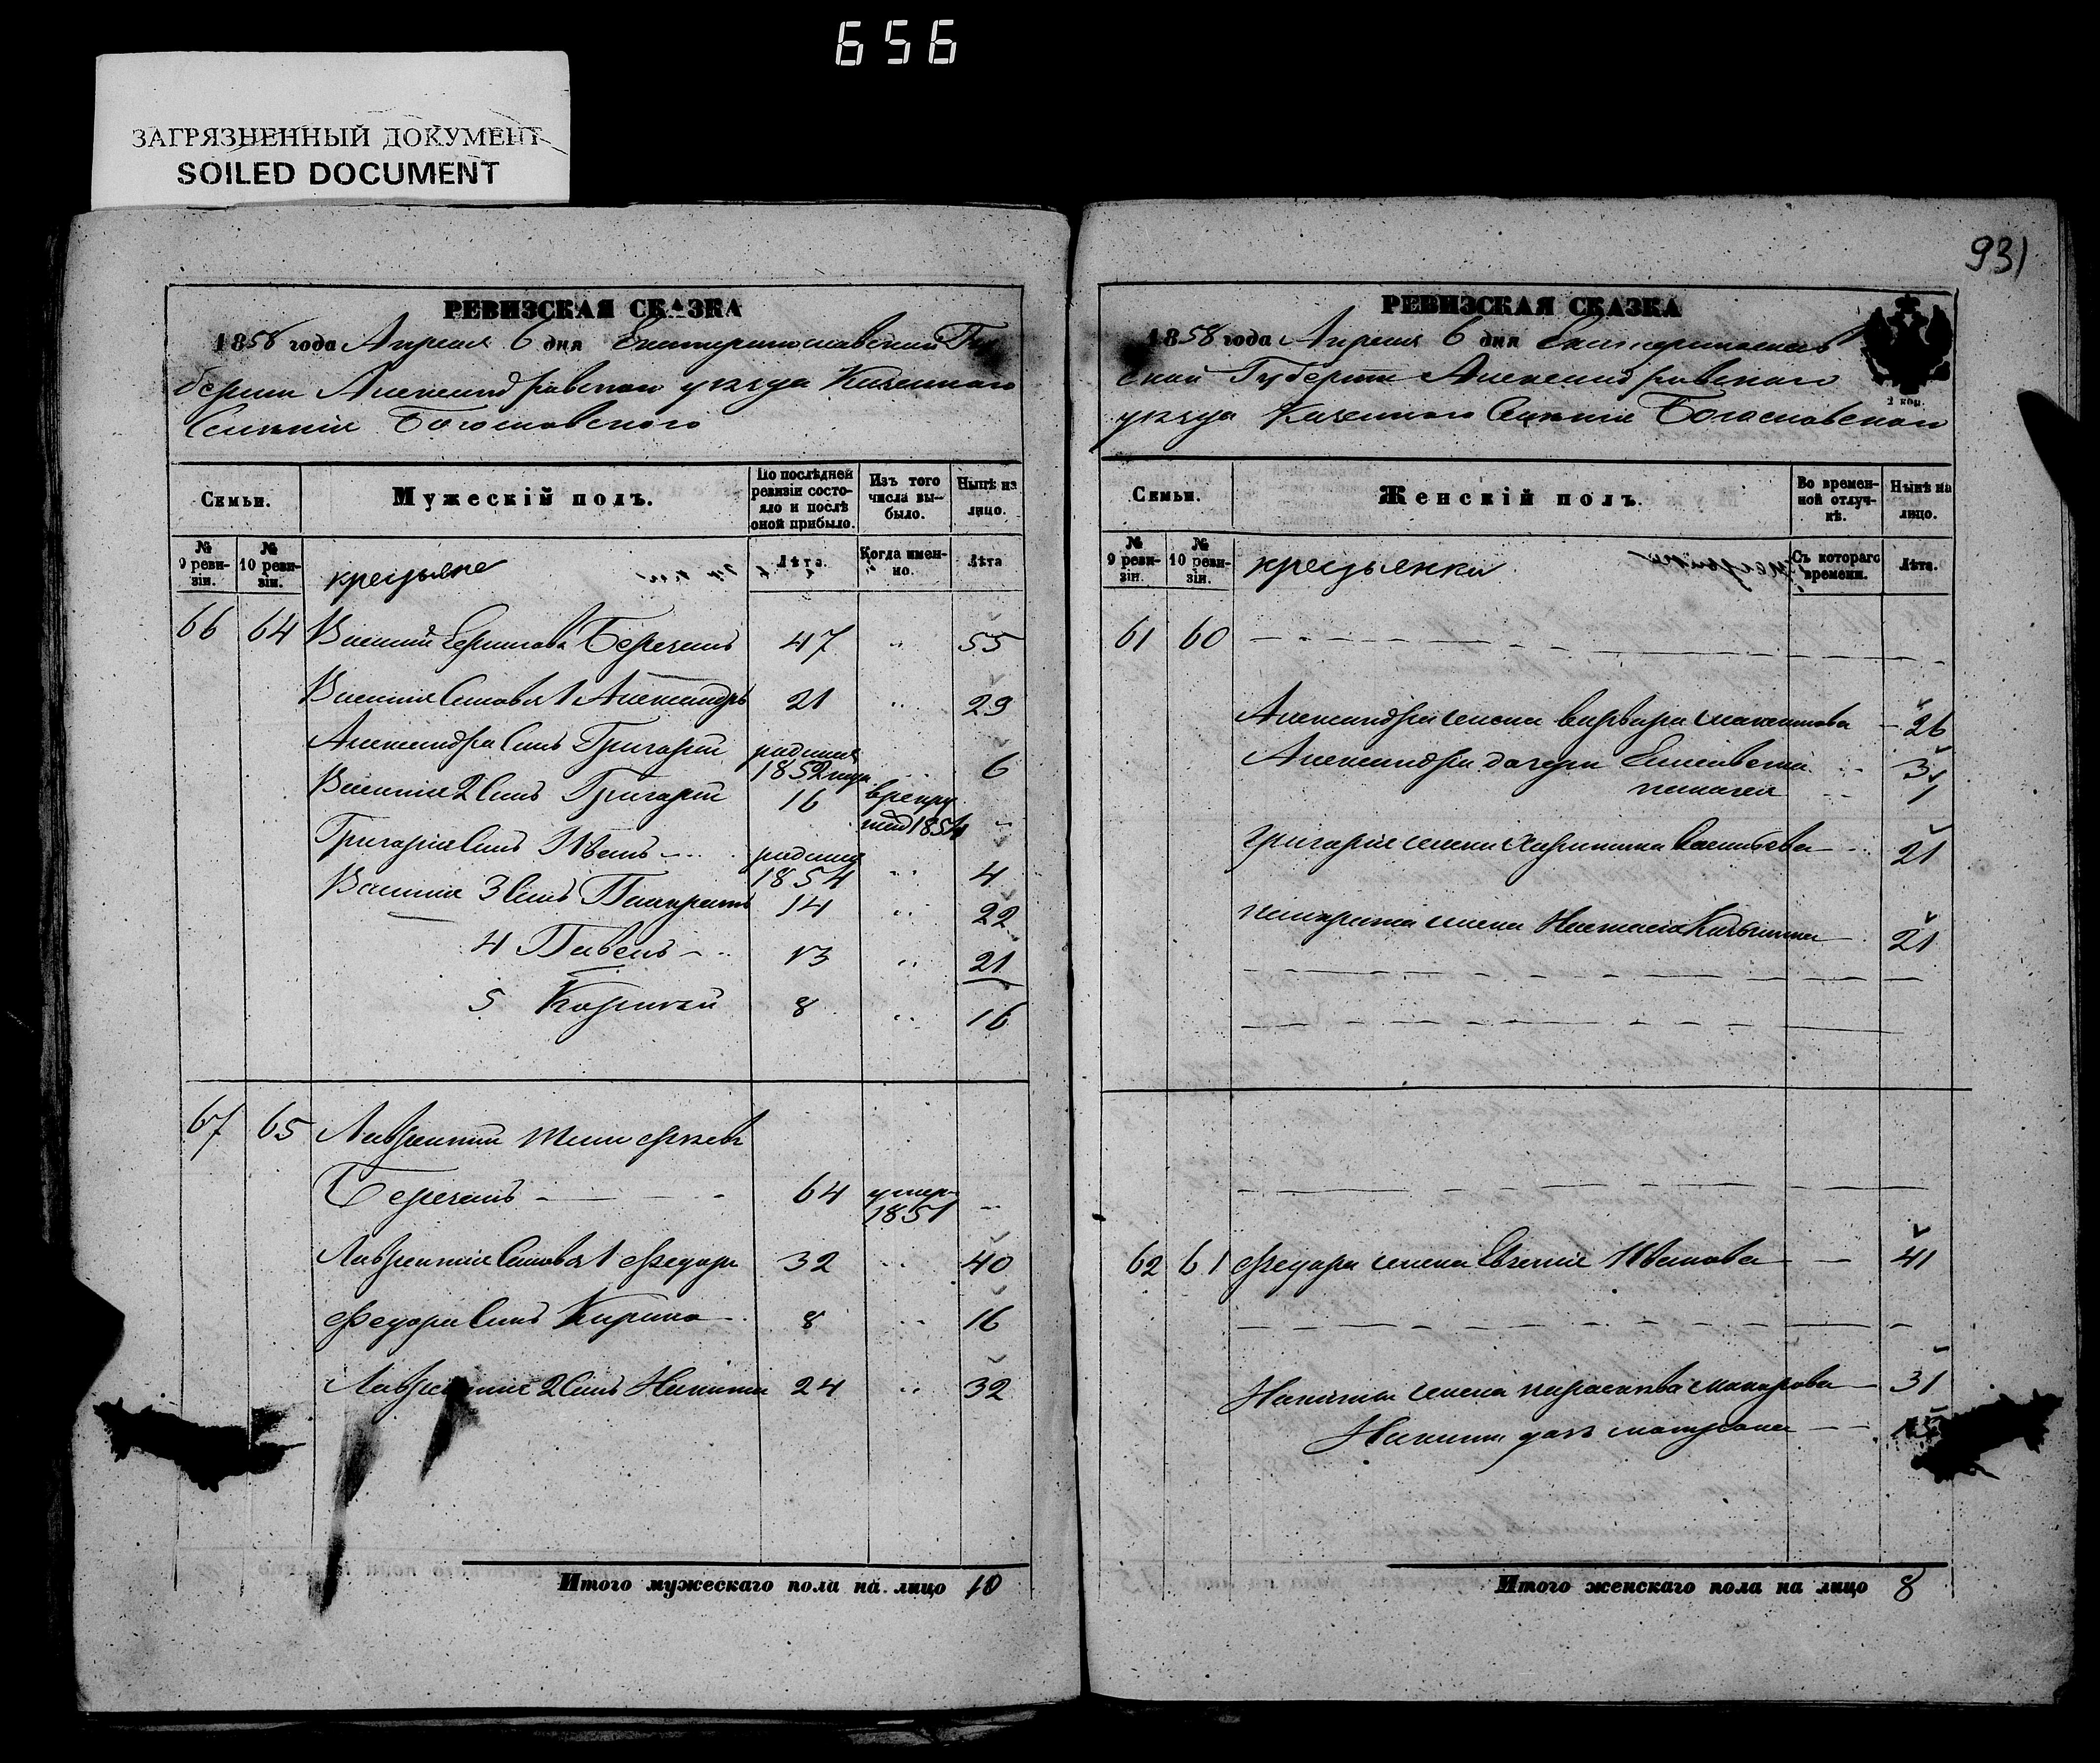 656
ЗАГРЯЗНЕННЫЙ ДОКУМЕНТ
SOILED DOCUMENT
РЕВИЗСКАЯ СКАЗКА
1858 года Апреля 6 дня Екатеринославской Гу
берни Александровскаго уезда Казеннаго
Селенія Богословского
Семьи.
Мужескій полъ.
По послѣдней ревизіи состояло и послѣ оной прибыло.
Изъ того числа выбыло.
Нынѣ на лицо.
№ 9 ревизіи.
№ 10 ревизіи.
крестьяне
Лѣта.
Когда именно.
Лѣта
66 64 Василий Бережнъ 47 " 55
Василия Сыновья 1 Александръ 21 " 29
Александра Сынъ Григорий родился 1852 года 6
Василия 2 Сынъ Григорий 16 в рекру 1854 "
Григория Сынъ Иванъ родился 1854 " 4
Василия 3 Сынъ Панкратъ 14 " 22
4 Павелъ 13 " 21
5 Корнѣй 8 " 16
67 65 Лаврентий Тимофеевъ
Бережнъ 64 умер 1851 "
Лаврентия Сыновья 1 Федоръ 32 " 40
Федора Сынъ Кирило 8 " 16
Лаврентия 2 Сынъ Никита 24 " 32
Итого мужескаго пола на лицо 10
931
РЕВИЗСКАЯ СКАЗКА
1858 года Апреля 6 дня Екатеринослав
ской Губерни Александровскаго
2 коп.
уезда Казенного Селенія Богословскаго
Семьи.
Женскій полъ.
Во временной отлучкѣ.
Нынѣ на лицо.
№ 9 ревизіи.
№ 10 ревизіи.
крестьянки
Съ котораго времени.
Лѣта.
61 60
Александра жена Варвара Максимова 26
Александра дочери Елисавета 3
пелагея 1
Григория жена Харитина Васильева 21
панкрата жена Настасия 21
62 61 Федора жена Евгения Иванова 41
Никиты жена параскева Макарова 31
Никиты доч матрона
Итого женскаго пола на лицо 8